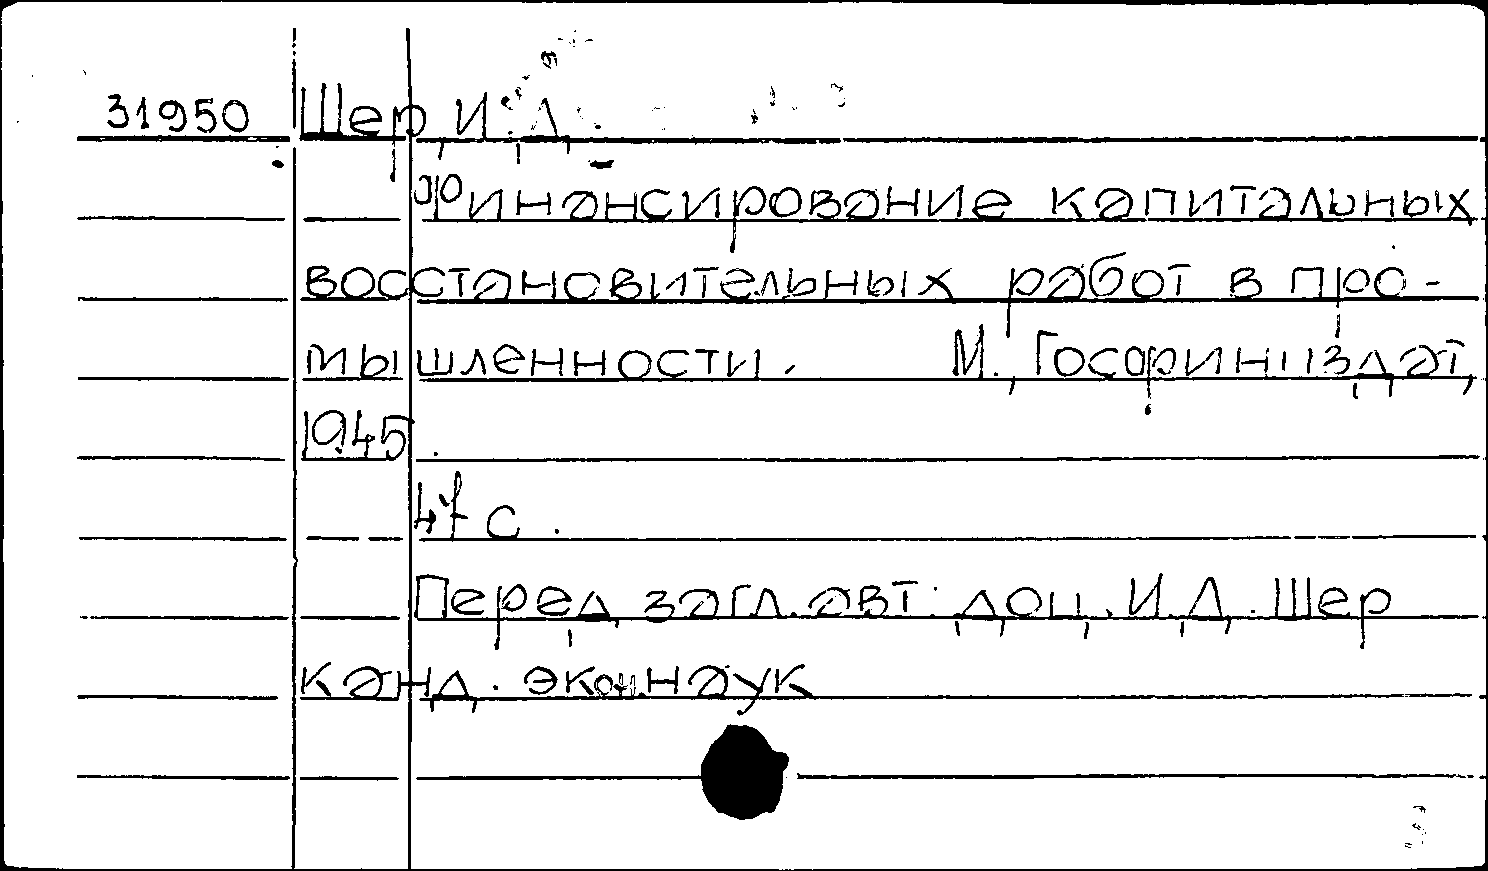 31950 Шер, И. Д.
Финансирование капитальных
восстановительных работ в про-
мышленности. М., Госфиниздат,
1945.
47 с.
Перед загл. авт. доц. И. Д. Шер
канд. экон. наук